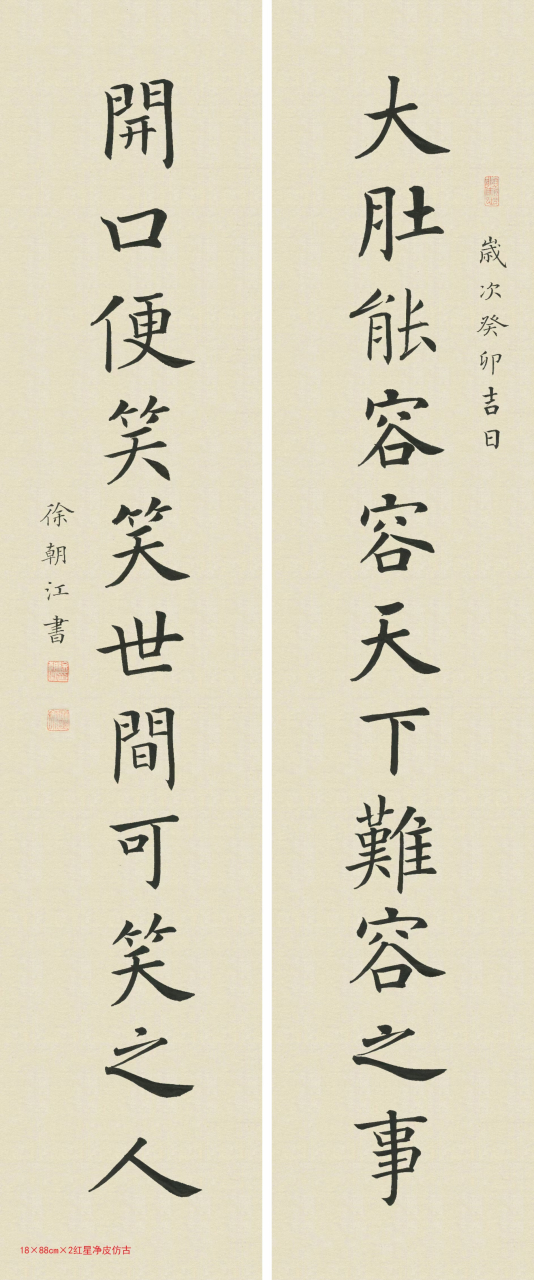 歲次癸卯吉日
大肚能容容天下難容之事
開口便笑笑世間可笑之人
徐朝江書
18×88cm×2红星净皮仿古